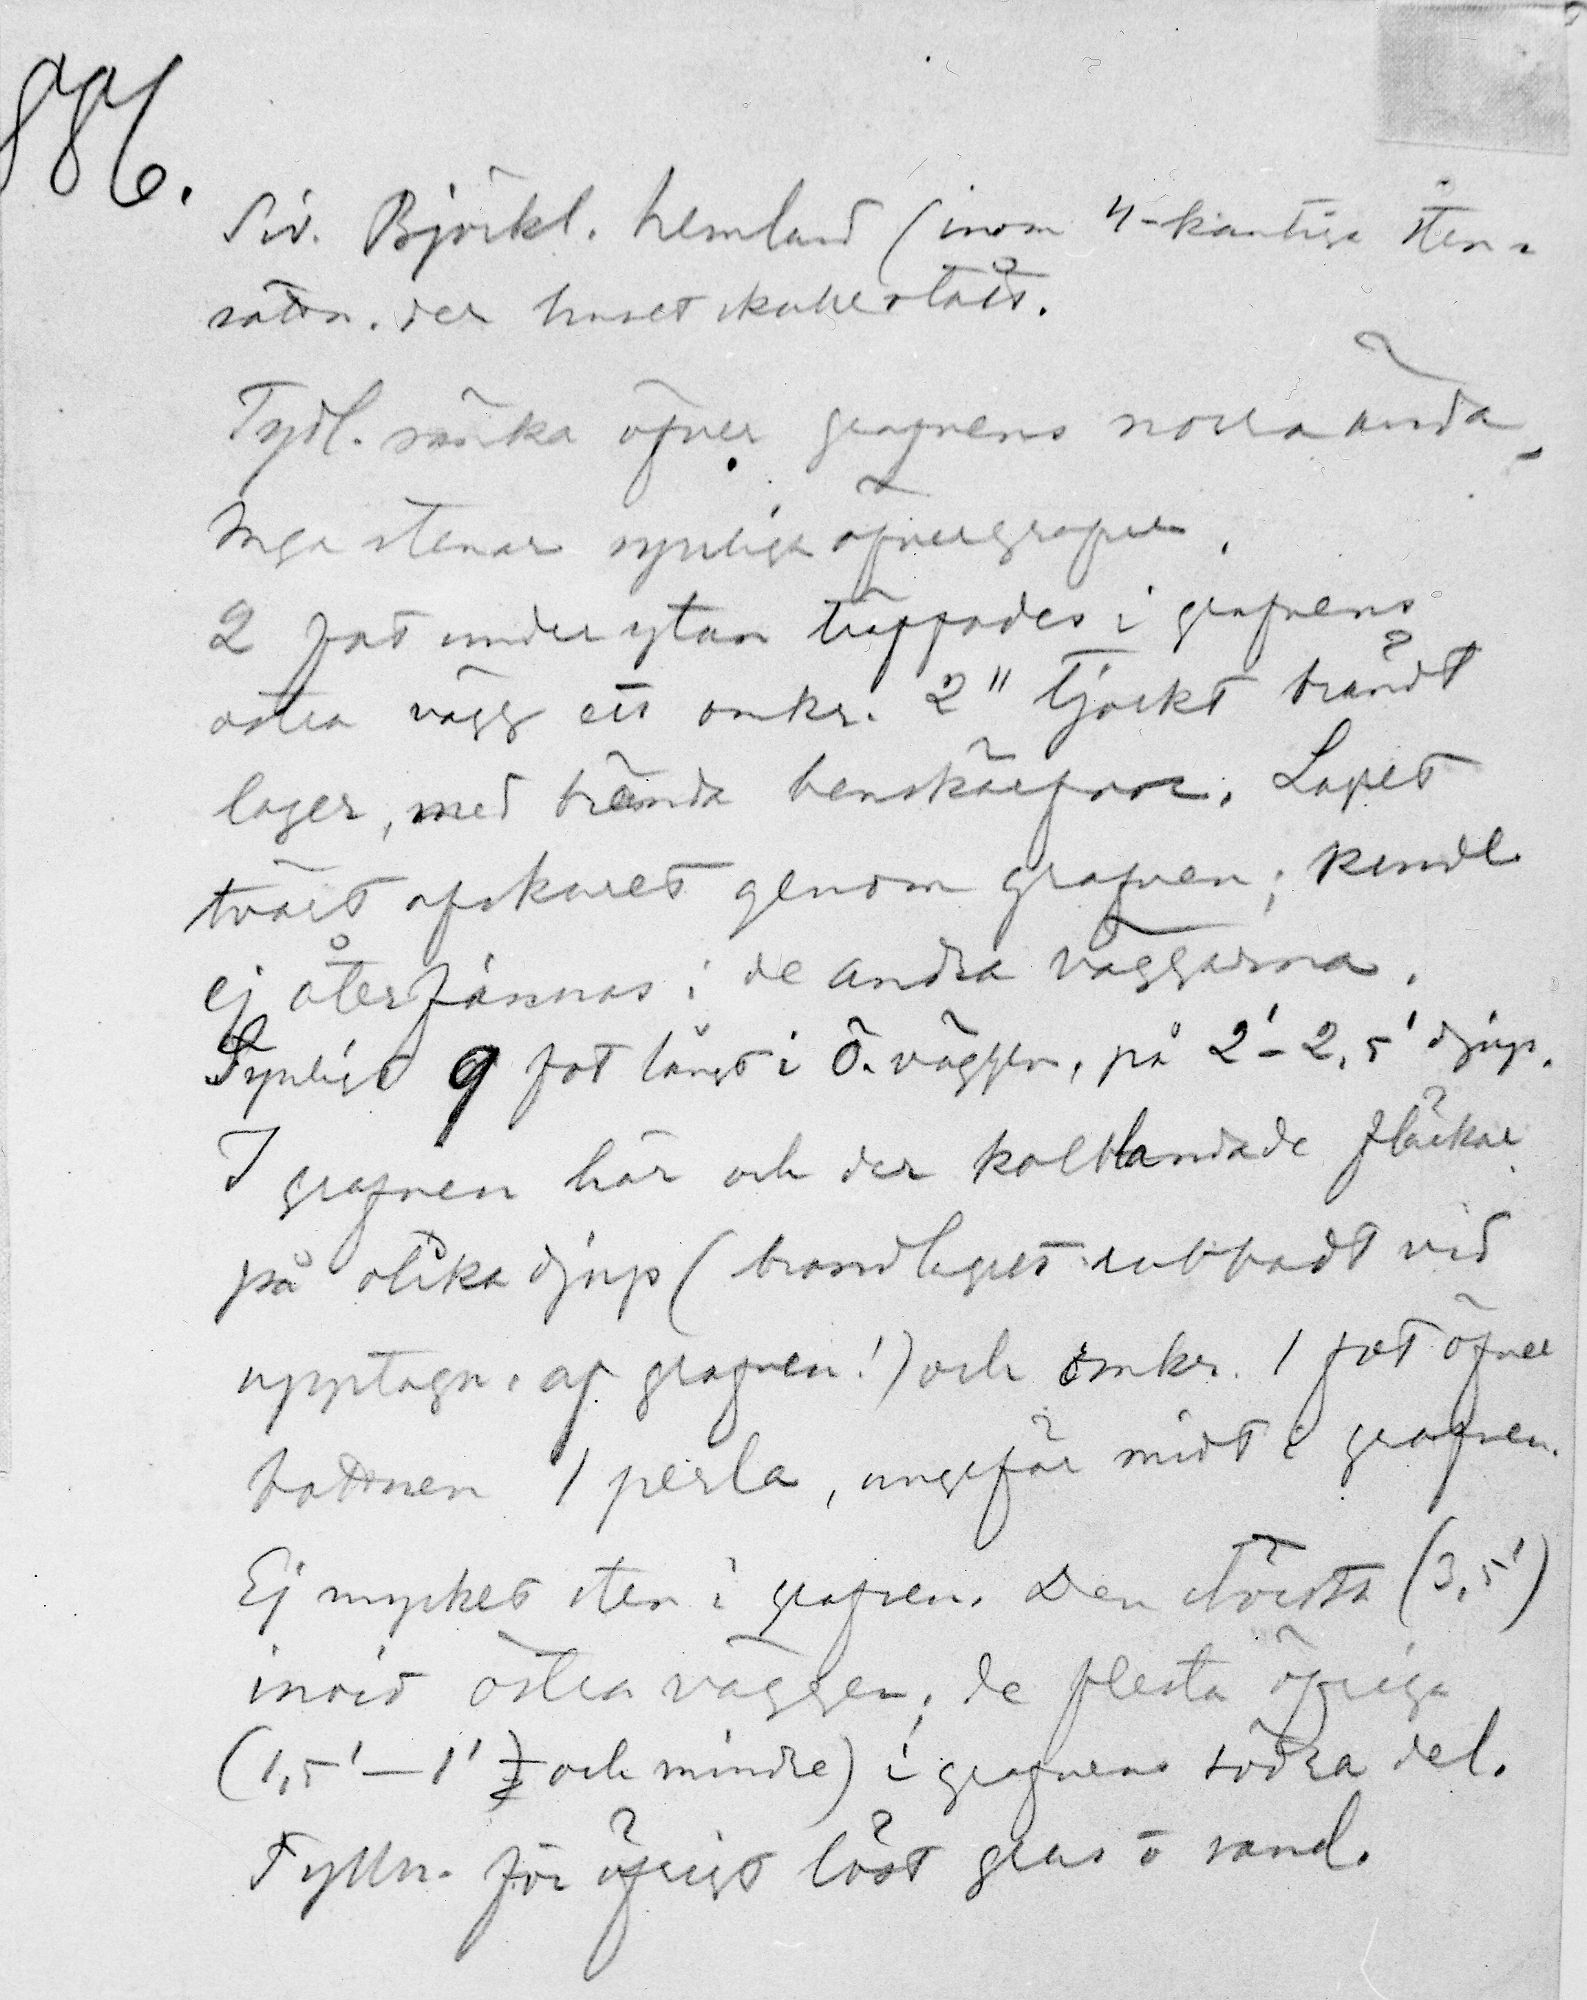 886.
Siv. Björkl. hemland (inom 4-kantiga sten-
sättn. der huset skall ha stått.
Tydl. sänka öfver grafvens norra ända.
Inga stenar synliga öfver grafven.
2 fot under ytan träffades i grafvens
östra vägg ett omkr. 2" tjockt brändt
lager, med brända benskärfvor. Lagret
tvärt afskuret genom grafven; kunde
ej återfinnas i de andra väggarna.
Synligt 9 fot långt i Ö. väggen, på 2'-2,5' djup.
I grafven här och der kolblandade fläckar
på olika djup (brandlagret rubbadt vid
upptagn. af grafven!) och omkr. 1 fot öfver
bottnen 1 perla, ungefär midt i grafven.
Ej mycket sten i grafven. Den största (3,5')
invid östra väggen, de flesta öfriga
(1,5'-1' och mindre) i grafvens södra del.
Fylln. för öfrigt löst grus o sand.